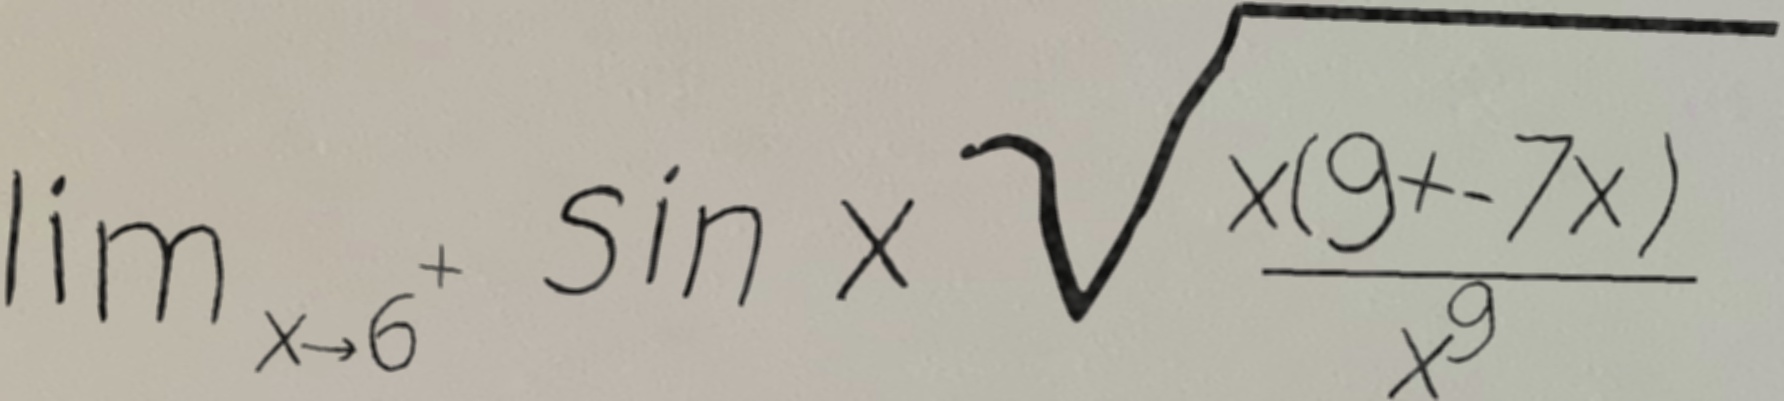 lim x→6⁺ sin x √ x(9+-7x) / x⁹